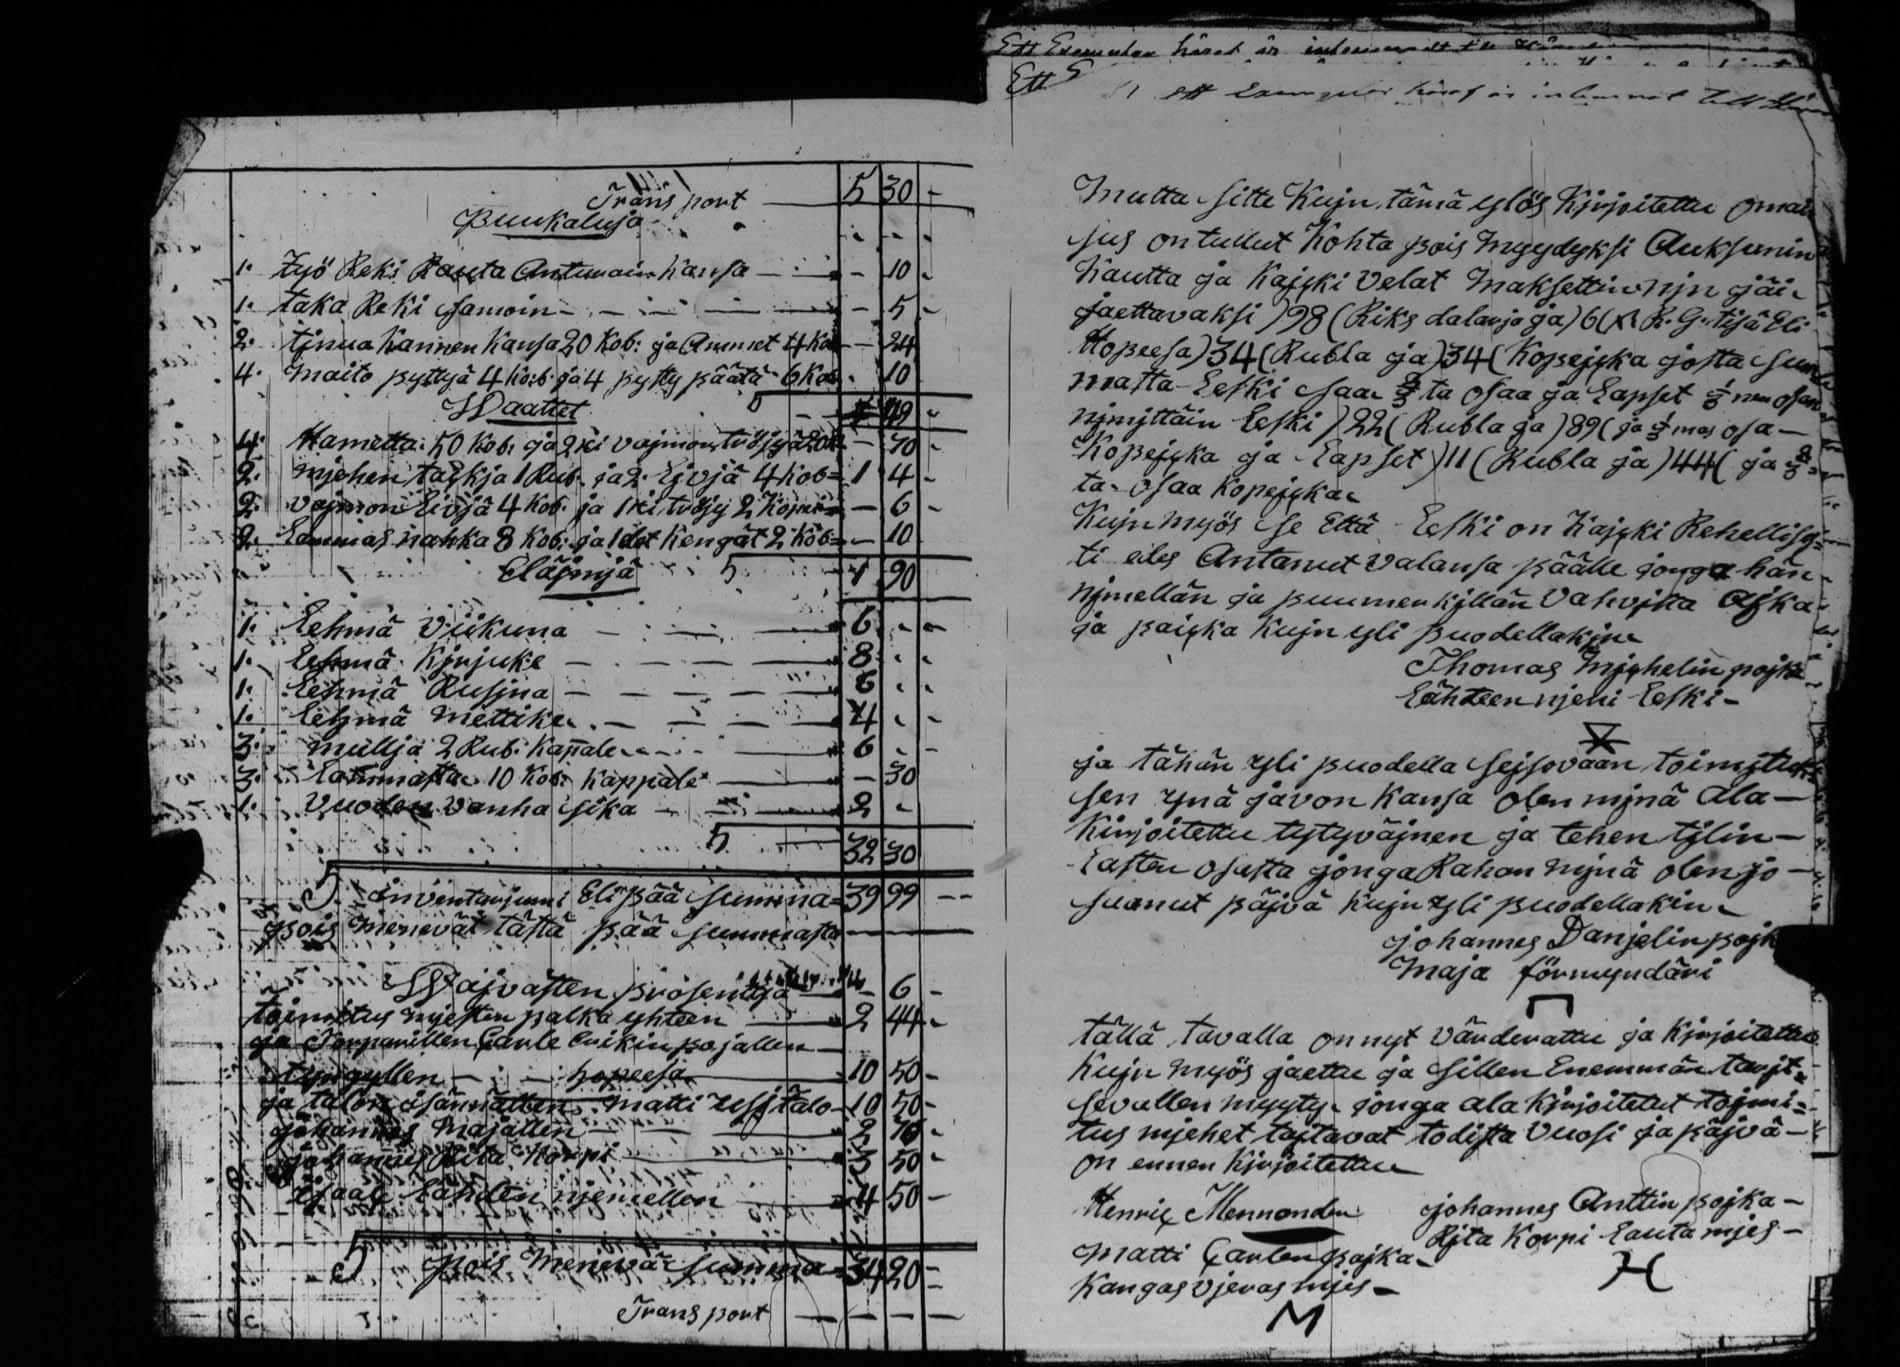 Transport 5 30 -
Puukaluja
1. työ Reki Rauta Anturain kansa - 10 -
1. taka Reki samoin - 5 -
2. tjnua kannen kansa 20 Kob: ja Ammet 4 Kob - 24
4. maito pyttyä 4 kob ja 4 pytty päätä 6 Kob - 10
Waattet 49 -
4. Hametta 50 Kob: ja 2 vajmon tröjyä - 70 -
2. mjehen takkja 1 Rub. ja 2 Ljvjä 4 Kob= 1 4 -
2. vajmon Livjä 4 Kob. ja 1 tröjy 2 - 6 -
2. Lammas nahka 8 Kob: ja 1 det Kengät 2 Kob= - 10
Eläjmjä 1 90
1. Lehmä Viikuna 6 - -
1. Lehmä Kjrjuke 8 - -
1. Lehmä Rusjna 6 - -
1. Lehmä Mettike 4 - -
3. mullja 2 Rub. Kappale 6 - -
3. Lammasta 10 Kob. Kappale - 30
1. Vuoden vanha sika 2 -
32 30
S. inventarjumi Eli pää summa= 39 99 --
pois menevät tästä pää summasta
Wajvasten prosenttja - 6 -
toimitus mjesten palka yhteen 2 44 -
ja Torparillen Carle Erikin pojallen
hopeesa 10 50 -
ja talon isännätten Matti Usjtalo 10 50 -
johannes Majallen 2 70 -
johannes Rita Korpi 3 50 -
Lähden njemellen 4 50 -
S pois menevä summa 34 20 -
Transport - - -
Ett Exemplar häraf är
Ett
ett Exemplar häraf är inlemnat till
Mutta sitte Kujn tämä ylös Kjrjoitettu omai
sus on tullut Kohta pois myydyksi Auksunin
Kautta ja Kajkki Velat maksettu njn jäi
jaettavaksi )98( Riks dalarja ja )6( R. G. tjsä Eli
Hopeesa )34( Rubla ja )34( Kopejkka josta sum
matta Leski saa 2/3 ta osaa ja Lapset 1/3 men osan
njmjttäin Leski )22( Rubla ja )89( ja 1/3 mas osa -
Kopejkka ja Lapset )11( Rubla ja )44( ja 2/3
ta osaa Kopejkka
Kujn myös se Että Leski on Kajkki Rehellisj=
ti edes Antanut Valansa päälle jonga hän
njmellän ja puumerkjllän vahvjsta Ajka
ja pajkka kujn yli puodellakjn
Thomas Mjkhelin pojka
Lähteen njemi Leski -
ja tähän yli puodella sejsovaan toimjtuk
sen ynä javon Kansa olen mjnä ala -
kirjoitettu tytyväjnen ja tehen tjlin -
Lasten osasta jonga Rahan mjnä olen jo -
saanut päjvä kujn yli puodellakin
johannes Danjelin pojk
Maja förmyndäri
tällä tavalla on nyt värderattu ja kjrjoitettu
Kujn myös jaettu ja sillen Enemmän tarjt=
sevallen myyty jonga ala kjrjoitetut tojmi=
tus mjehet tajtavat todista Vuosi ja päjvä -
on ennen kjrjoitettu
Henric Mennander
johannes Anttin pojka -
Rjta Korpi Lauta mjes -
H
Matti Carlen pojka -
Kangas vjeras mjes -
M